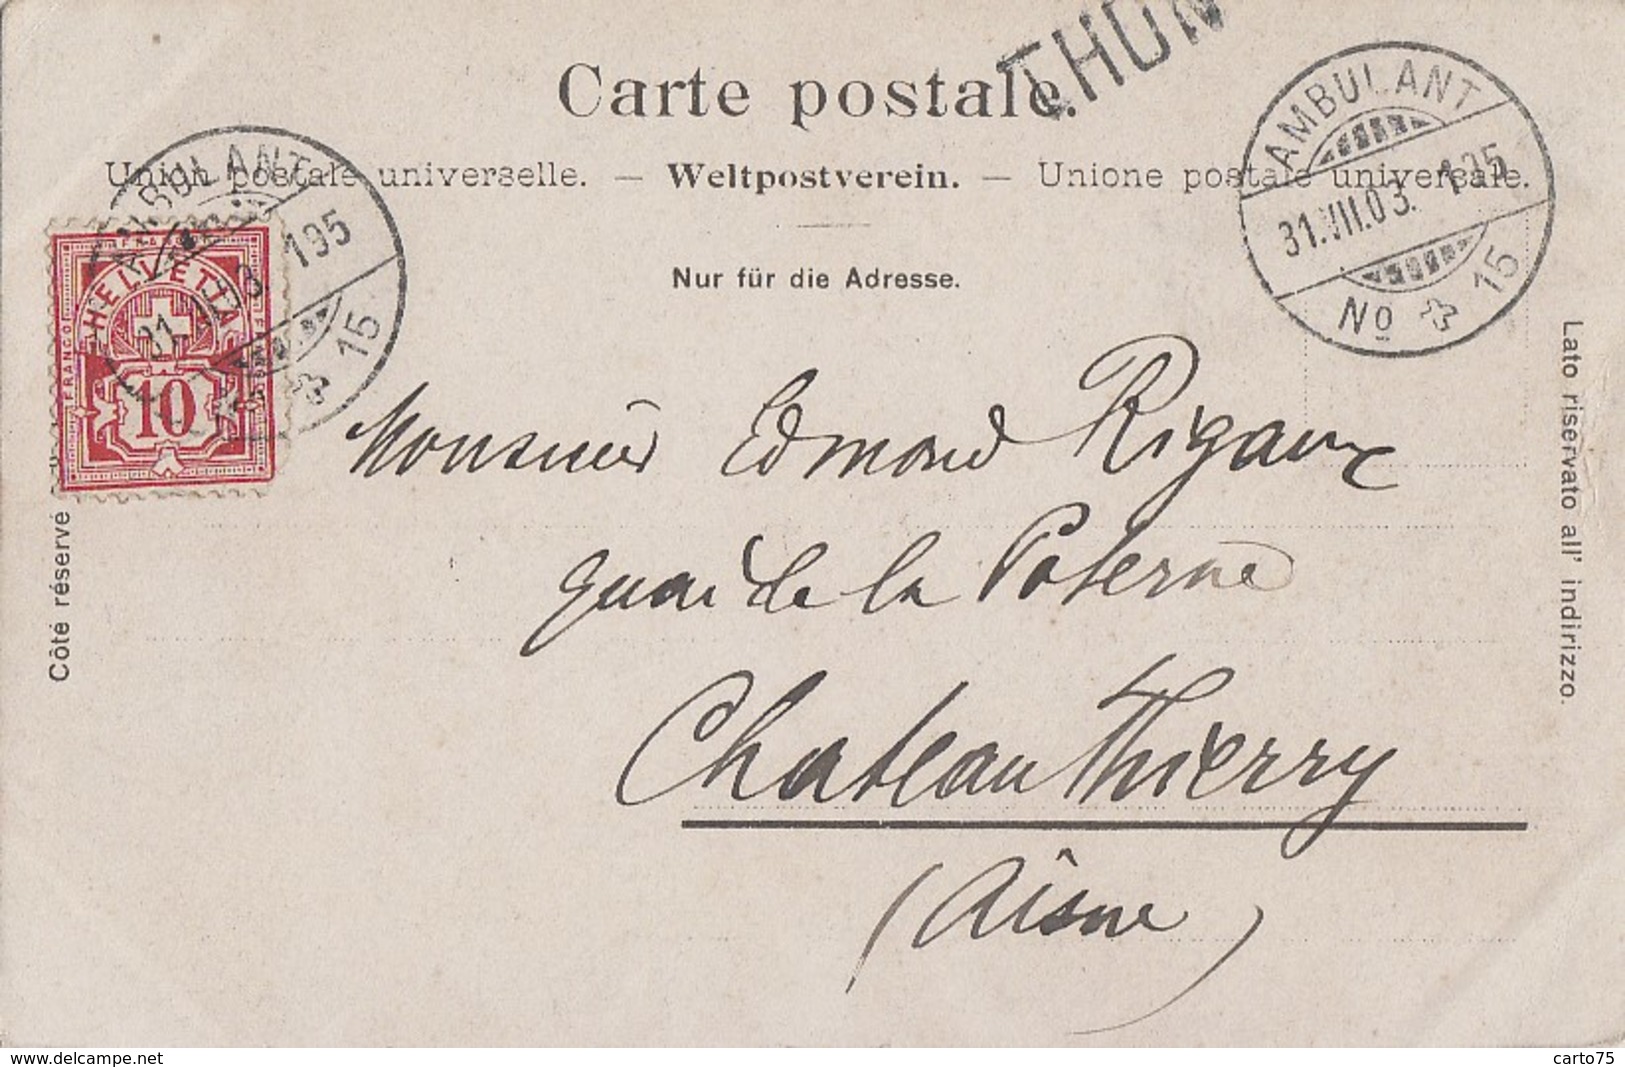 THUN
Carte postale.
Union postale universelle. — Weltpostverein. — Unione postale universale.
Nur für die Adresse.
AMBULANT
31.VII.03. 195
No 15
AMBULANT
31.VII.03. 195
15
FRANCO
HELVETIA
FRANCO
10
Côté réservé
Lato riservato all' indirizzo.
Monsieur Edmond Rigaux
quai de la Poterne
Chateau Thierry
(Aisne)
www.delcampe.net
carto75